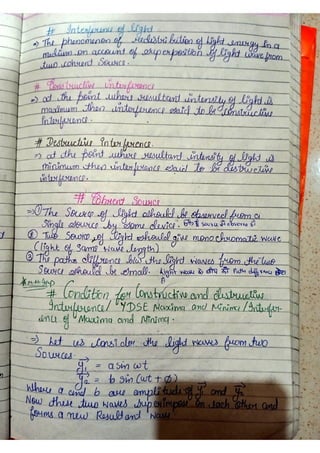 # Interference of light
⇒ The phenomenon of redistribution of light energy in a
medium on account of superposition of light wave from
two coherent source.
# Constructive interference
⇒ at the point where resultant intensity of light is
maximum then interference said to be constructive
Interference.
# Destructive Interference
⇒ at the point where resultant intensity of light is
minimum then interference said to be destructive
interference.
# Coherent Source
⇒ ① The Source of light should be observed from a
Single source by some device.
② Two Source of light should give monochromatic wave
(light of same wave length)
③ The paths difference b/w the light waves from the two
Source should be small. light wave
# Condition for Constructive and destructive
Interference / YDSE Maxima and Minima / Interfer-
ence of Maxima and Minima.
⇒ Let us consider the light waves from two
Sources
y₁ = a sin wt
y₂ = b sin (wt + ϕ)
where a and b are amplitude of y₁ and y₂
Now these two waves superimpose on each other and
forms a new Resultand wave